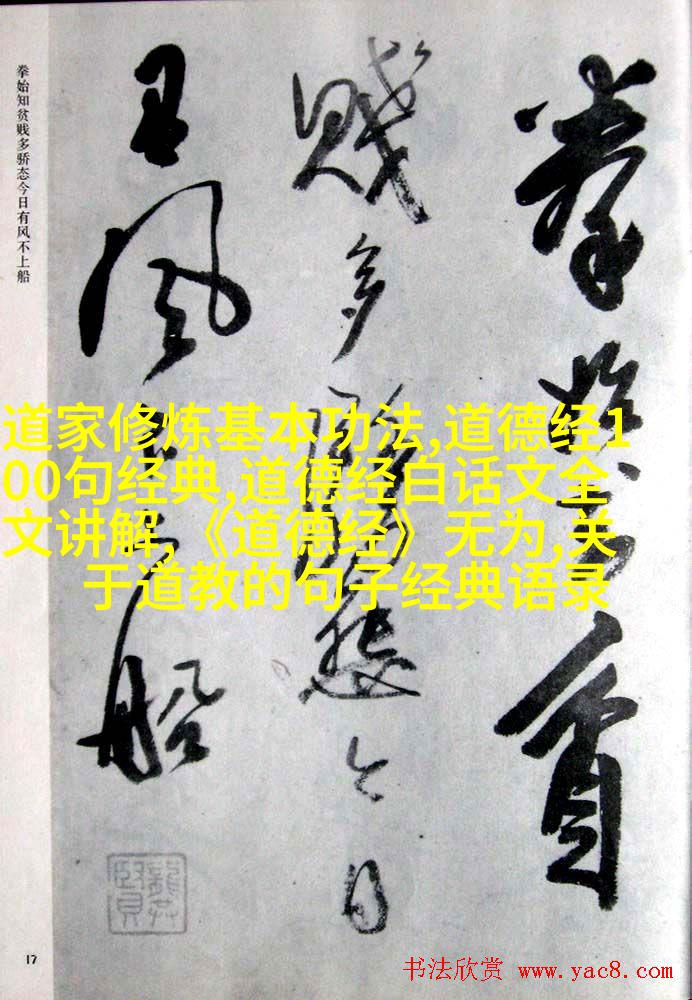 拳始知貧
賤多驕態今日
有風不上船
拳始知贫贱多骄态今日有风不上船
道家修炼基本功法,道德经1
00句经典,道德经白话文全
文讲解,《道德经》无为,关
于道教的句子经典语录
17
书法欣赏 www.yac8.com